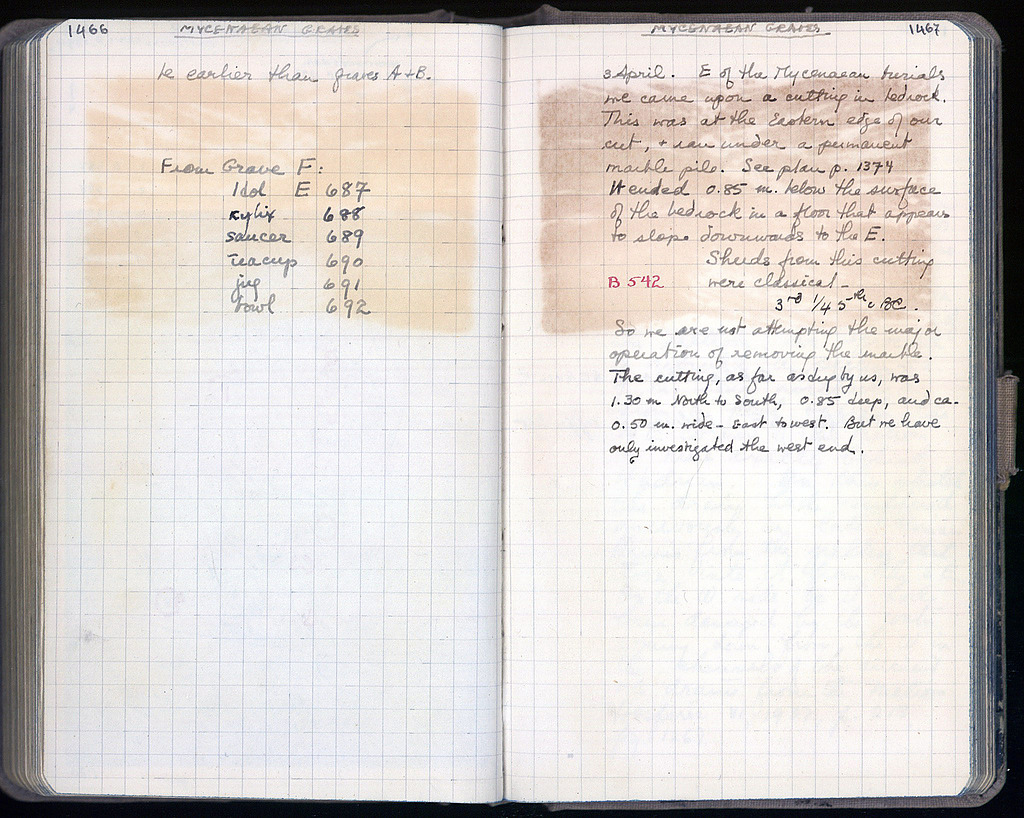 1466
MYCENAEAN GRAVES
ie earlier than graves A+B.
From Grave F:
Idol E 687
kylix 688
saucer 689
teacup 690
jug 691
bowl 692
MYCENAEAN GRAVES
1467
3 April. E of the Mycenaean burials
we came upon a cutting in bedrock.
This was at the Eastern edge of our
cut, + ran under a permanent
marble pile. See plan p. 1374
It ended 0.85 m. below the surface
of the bedrock in a floor that appears
to slope downwards to the E.
Sherds from this cutting
B 542 were classical -
3rd 1/4 5th c BC.
So we are not attempting the major
operation of removing the marble.
The cutting, as far as dug by us, was
1.30 m North to South, 0.85 deep, and ca.
0.50 m. wide - East to west. But we have
only investigated the west end.